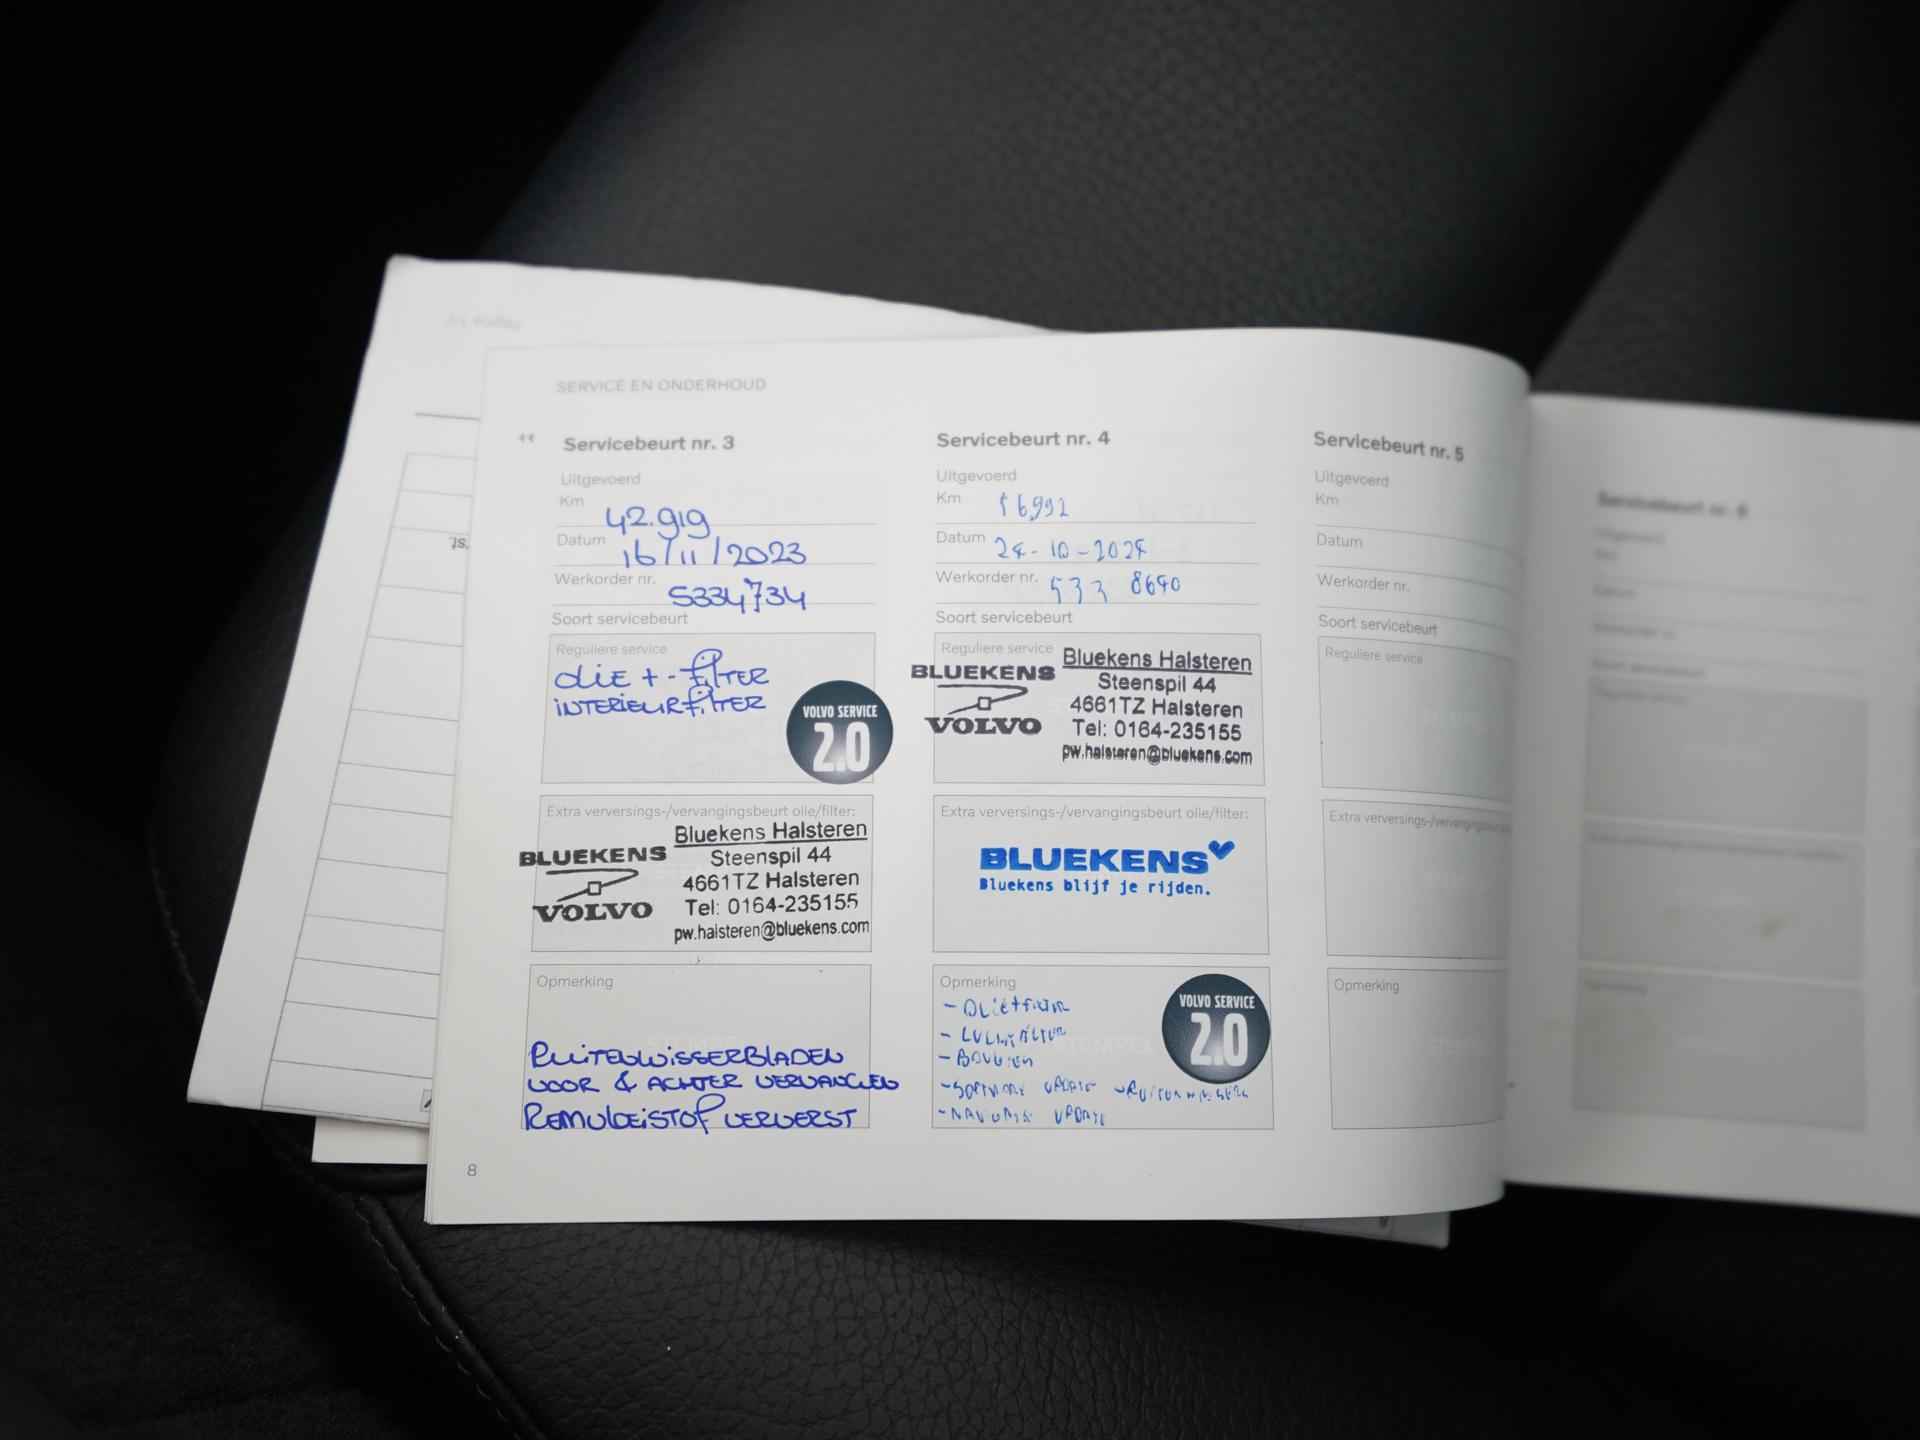 SERVICE EN ONDERHOUD
Servicebeurt nr. 3
Uitgevoerd
Km 42.919
Datum 16/11/2023
Werkorder nr. 5334734
Soort servicebeurt
Reguliere service
olie + -filter
interieurfilter
VOLVO SERVICE
2.0
Extra verversings-/vervangingsbeurt olie/filter:
BLUEKENS
VOLVO
Bluekens Halsteren
Steenspil 44
4661TZ Halsteren
Tel: 0164-235155
pw.halsteren@bluekens.com
Opmerking
Ruitenwisserbladen
voor & achter vervangen
Remvloeistof ververst
8
Servicebeurt nr. 4
Uitgevoerd
Km 56992
Datum 24-10-2024
Werkorder nr. 533 8640
Soort servicebeurt
Reguliere service
BLUEKENS
VOLVO
Bluekens Halsteren
Steenspil 44
4661TZ Halsteren
Tel: 0164-235155
pw.halsteren@bluekens.com
Extra verversings-/vervangingsbeurt olie/filter:
BLUEKENS
Bluekens blijf je rijden.
Opmerking
- olie+filter
- Luchtfilter
- Bougien
- Software update - Ruitenwissers
- Navigatie update
VOLVO SERVICE
2.0
Servicebeurt nr. 5
Uitgevoerd
Km
Datum
Werkorder nr.
Soort servicebeurt
Reguliere service
Extra verversings-/vervangingsbeurt
Opmerking
Servicebeurt nr. 6